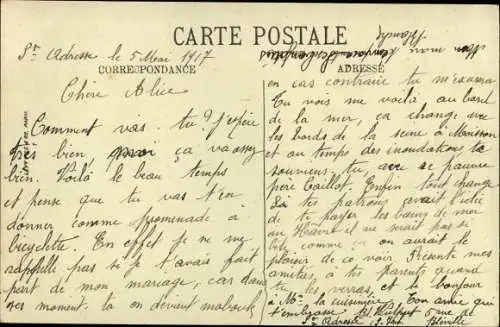 CARTE POSTALE
Ste Adresse le 5 Mai 1917
CORRESPONDANCE
ADRESSE
Chère Alice
Comment vas-tu? J'espère
très bien moi ça va assez
bien. Voilà le beau temps
et pense que tu vas t'en
donner comme promenade à
bicyclette. En effet je ne me
rappelle pas si je t'avais fait
part de mon mariage, car dans
ses moment-là on devient maboule
en cas contraire tu m'excusera
Tu vois me voilà au bord
de la mer, ça change avec
les bords de la seine à Moisson
et au temps des inondations te
souviens tu avec se pauvre
père Caillot. Enfin tout change
Si tes patrons avait l'idée
de te payer les bains de mer
au Havre il ne m'irait pas si
vite comme ça on aurait le
plaisir de ce voir. Présente mes
amitiés, à tes parents quand
tu les verras, et le bonjour
à Mme la cuisinière. Ton amie qui
t'embrasse
5 rue de
Ste Adresse
Bléville